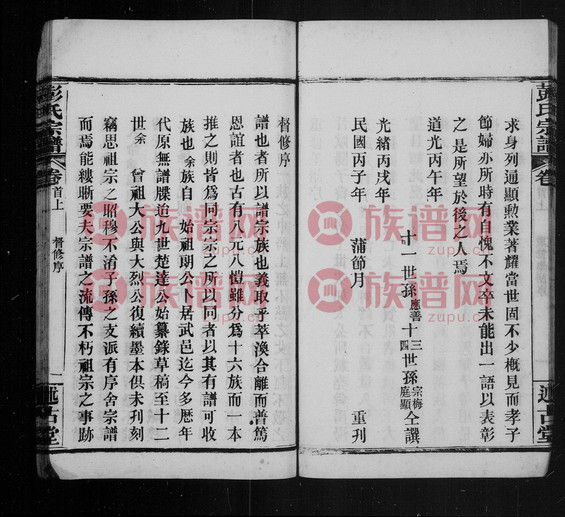 求身列通顯勲業著耀當世固不少概見而孝子
節婦亦所時有自愧不文卒未能出一語以表彰
之是所望於後之人焉
道光丙午年
十一世孫應善十三四世孫宗梅庭顯仝譔
光緒丙戌年
民國丙子年 蒲節月 重刋
彭氏宗譜 卷
述古堂
督修序
譜也者所以譜宗族也義取乎萃渙合離而普篤
恩誼者也古有八元八愷雖分為十六族而一本
推之則皆為同宗宗之所以同者以其有譜可收
族也余族自 始祖期公卜居武邑迄今多歷年
代原無譜牒追九世楚達公始纂錄草稿至十二
世余 曾祖大公與大烈公復續墨本俱未刋刻
竊思祖宗之昭穆不淆子孫之支派有序舍宗譜
而焉能縷晣要夫宗譜之流傳不朽祖宗之事跡
彭氏宗譜 卷首上 督修序 述古堂
族谱网
zupu.cn
族谱网
zupu.cn
族谱网
zupu.cn
族谱网
zupu.cn